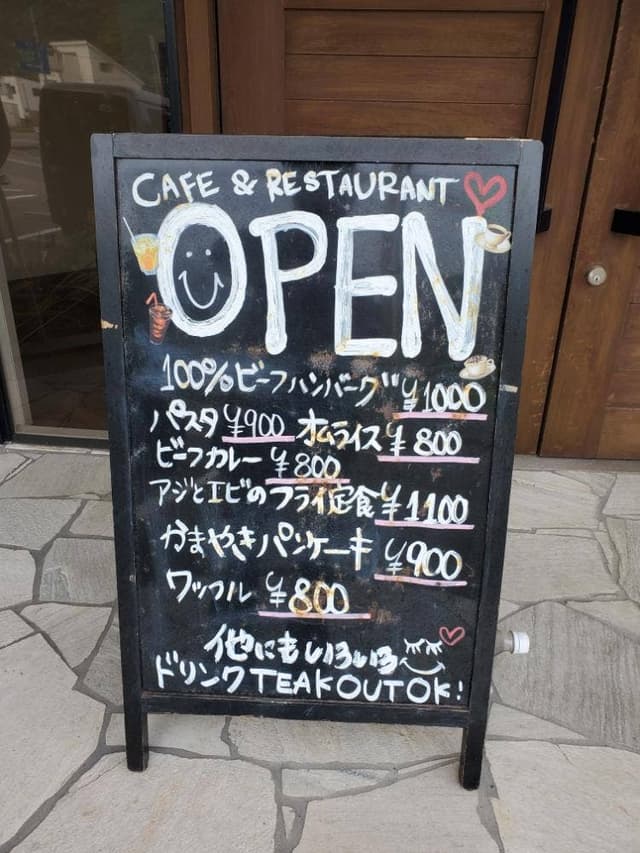 CAFE & RESTAURANT
OPEN
100%ビーフハンバーグ ¥1000
パスタ ¥900 オムライス ¥800
ビーフカレー ¥800
アジとエビのフライ定食 ¥1100
かまやきパンケーキ ¥900
ワッフル ¥800
他にもいろいろ
ドリンクTEAKOUTOK!